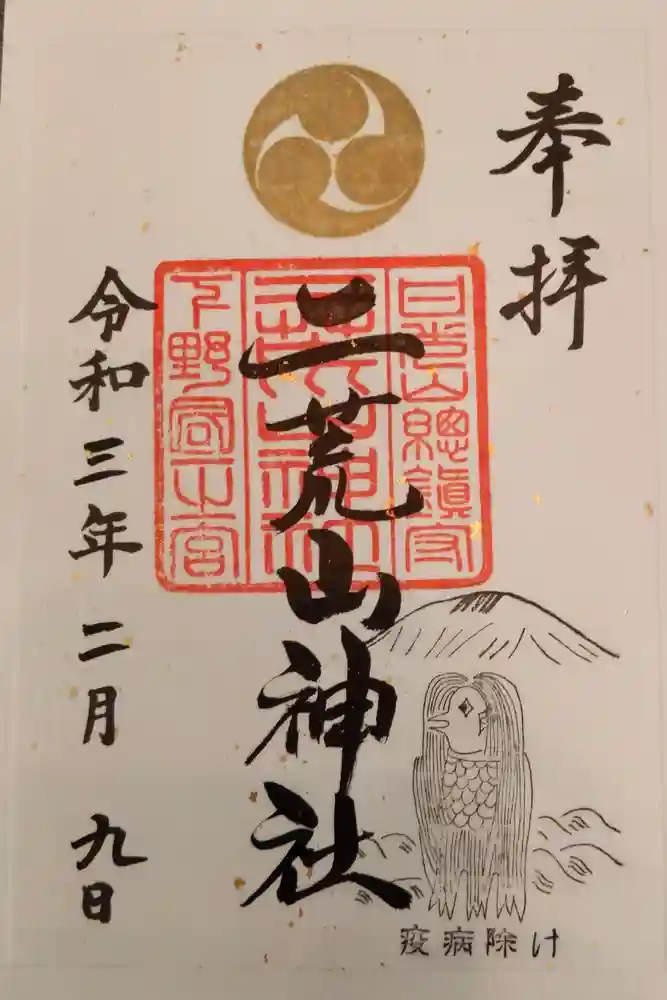 奉拝
日光山總鎮守
二荒山神社
二荒山神社
下野國一之宮
令和三年二月九日
疫病除け